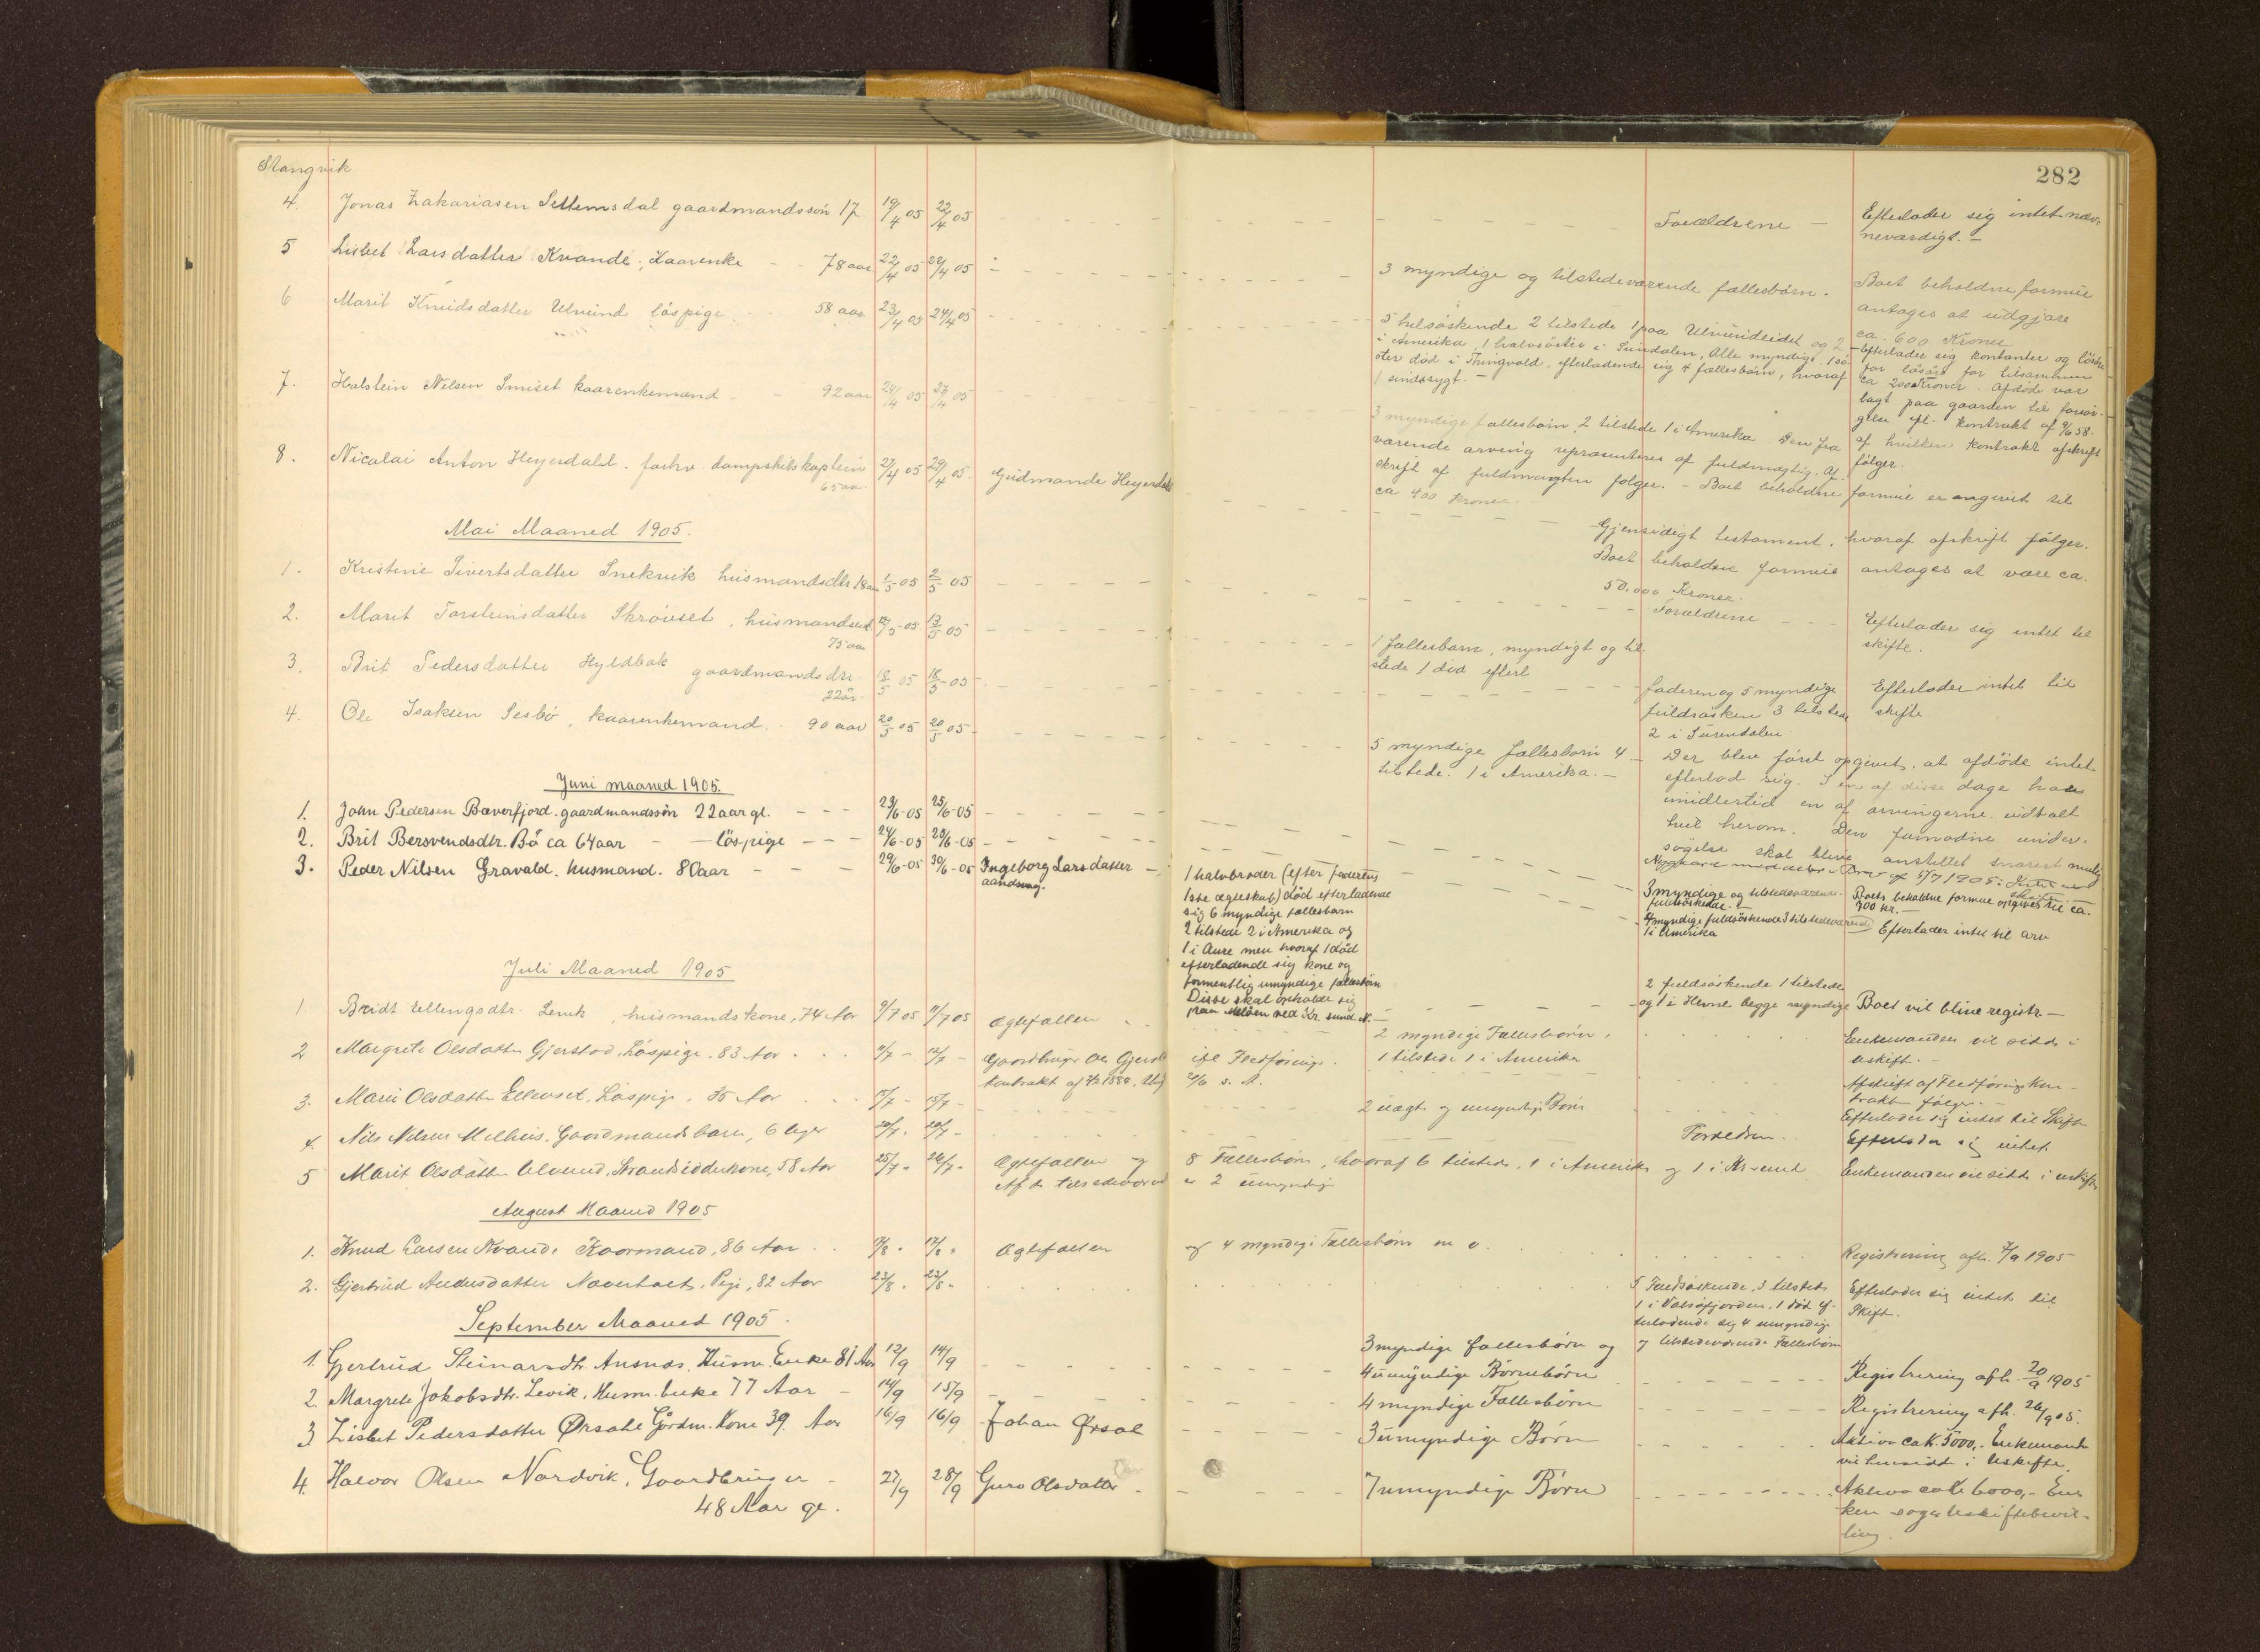 Stangvik
282
4. Jonas Zakariasen Settemsdal gaardmandssön 17 19/4 05 22/4 05 Forældrene — Efterlader sig intet næv-
neværdigt. —
5 Lisbet Larsdatter Kvande, Kaarenke 78 aar 22/4 05 29/4 05 3 myndige og tilstedeværende fællesbörn. Boet beholdne formue
antages at udgjøre
ca. 600 Kroner
6 Marit Knudsdatter Ulvund löspige 58 aar 23/4 05 24/4 05 5 helsöskende 2 tilstede 1 paa Ulvundeidet og 2 Efterlader sig kontanter og lösöre
i Amerika, 1 halvsöster i Sundalen, Alle myndige. 1 sö- for lösöre for tilsammen
ster död i Thingvold, efterladende sig 4 fællesbörn, hvoraf ca 200 Kroner. Afdöde var
1 sindssygt. — lagt paa gaarden til forsör-
gelse efl. kontrakt af 9/6 58.
af hvilken kontrakt afskrift
fölger.
7. Halstein Nilsen Smiset kaarenkemand 92 aar 24/4 05 27/4 05 3 myndige fællesbörn, 2 tilstede 1 i Amerika. Den fra
værende arving repræsenteres af fuldmægtig. Af-
skrift af fuldmagten fölger. — Boet beholdne formue er angivet til
ca 400 Kroner.
8. Nicolai Anton Heyerdahl. forhv. dampskibskaptein 27/4 05 29/4 05. Gudmunde Heyerdahl
65 aar.
Gjensidigt testament, hvoraf afskrift fölger.
Boet beholdne formue antages at være ca.
50.000 Kroner.
Mai Maaned 1905.
1. Kristine Sivertsdatter Snekvik husmandsdtr 18 aar 1/5 05 2/5 05 Forældrene — Efterlader sig intet til
skifte.
2. Marit Torsteinsdatter Skrövset, husmandsenk 12/5-05 13/5 05 1 fællesbarn, myndigt og til
75 aar stede 1 död efterl
3. Brit Pedersdatter Hyldbak gaardmandsdtr 18/5 05 18/5-05 faderen og 5 myndige Efterlader intet til
22 år. fuldsösken 3 tilstede skifte
2 i Surendalen
4. Ole Isaksen Sesbö, kaarenkemand. 90 aar 20/5 05 20/5 05 5 myndige fællesbörn 4 — Der blev först opgivet, at afdöde intet
tilstede. 1 i Amerika. — efterlod sig. I en af disse dage har
imidlertid en af arvingerne udtalt
tvil herom. Den fornødne under-
søgelse skal blive anstillet snarest mulig
Juni maaned 1905.
1. John Pedersen Bæverfjord. gaardmandssön 22 aar gl. 23/6-05 25/6-05 3 myndige og tilstedeværende Boets beholdne formue opgives til ca.
fuldsöskende. — 300 kr. —
2. Brit Bersvendsdtr. Bö ca 64 aar — löspige 24/6-05 28/6-05 4 myndige fuldsöskende 3 tilstedeværende Efterlader intet til arv
1 i Amerika
3. Peder Nilsen Gravald. husmand. 80 aar 29/6-05 30/6-05 Ingeborg Larsdatter 1 halvbroder (efter faderens
aandssvag. 1ste ægteskab) död efterladende
sig 6 myndige fællesbarn
2 tilstede 2 i Amerika og
1 i Aure men hvoraf 1 död
efterladende sig kone og
formentlig umyndige fællesbörn
Disse skal opholde sig
paa Melöen ved Kr. sund. N. —
Juli Maaned 1905
1. Bridt Ellingsdtr. Levik, husmandskone, 74 Aar 9/7 05 11/7 05 Ægtefællen 2 fuldsöskende 1 tilstede
og 1 i Hevne begge myndige Boet vil blive registr. —
2 Margrete Olsdatter Gjerstad, Löspige. 83 Aar 11/7 — 12/7 — Gaardbruger Ole Gjerst 2 myndige Fællesbörn. Enkemanden vil sidde i
1 tilstede 1 i Amerika uskift. —
Afskrift af Flodføringskon-
trakt følger. —
3. Marit Olsdatter Ellevset, Löspige, 35 Aar 15/7 — 15/7 — 2 uægt. og umyndige Börn Efterlader sig intet til Skifte
4. Nils Nilsen Melhus, Gaardmandsbarn, 6 Uger 20/7. 20/7 — Forældren. Efterlader sig intet
5 Marit Olsdatter Ulvund, Strandsidderkone, 58 Aar 25/7 26/7 — Ægtefællen og 8 Fællesbörn, hvoraf 6 tilstede, 1 i Amerika og 1 i Kr-sund Enkemanden vil sidde i uskifte
Af de tilstedeværend er 2 umyndige
August Maaned 1905
1. Knud Larsen Kvande Kaarmand, 86 Aar 17/8. Ægtefællen og 4 myndige Fællesbörn Registrering afh. 7/9 1905
2. Gjertrud Andersdatter, Pige, 82 Aar 23/8. 5 Fuldsöskende, 3 tilstede Efterlader sig intet til
1 i Valsøfjorden, 1 död ef- Skift.
terladende sig 4 umyndige
og tilstedeværende Fællesbörn
September Maaned 1905.
1. Gjertrud Steinarsdtr. Ansnæs, Husm. Enke 81 Aar 12/9 14/9 3 myndige fællesbörn og
4 umyndige Börnebörn Registrering afh. 20/9 1905
2. Margrete Jakobsdtr. Levik, Husm. enke 77 Aar 14/9 15/9 4 myndige Fællesbörn Registrering afh. 26/9 05.
3 Lisbet Pedersdatter Ørsahl Gårdm. Kone 39 Aar 16/9 16/9 Johan Ørsal 3 umyndige Børn Aktiva ca K. 5000,- Enkemand
i Uskifte.
4. Halvor Olsen Nordvik, Gaardbruger 27/9 28/9 Guro Olsdatter 7 umyndige Børn Aktiva ca K 6000,- En-
48 Aar gl. ken søger Uskiftebevil-
ling.